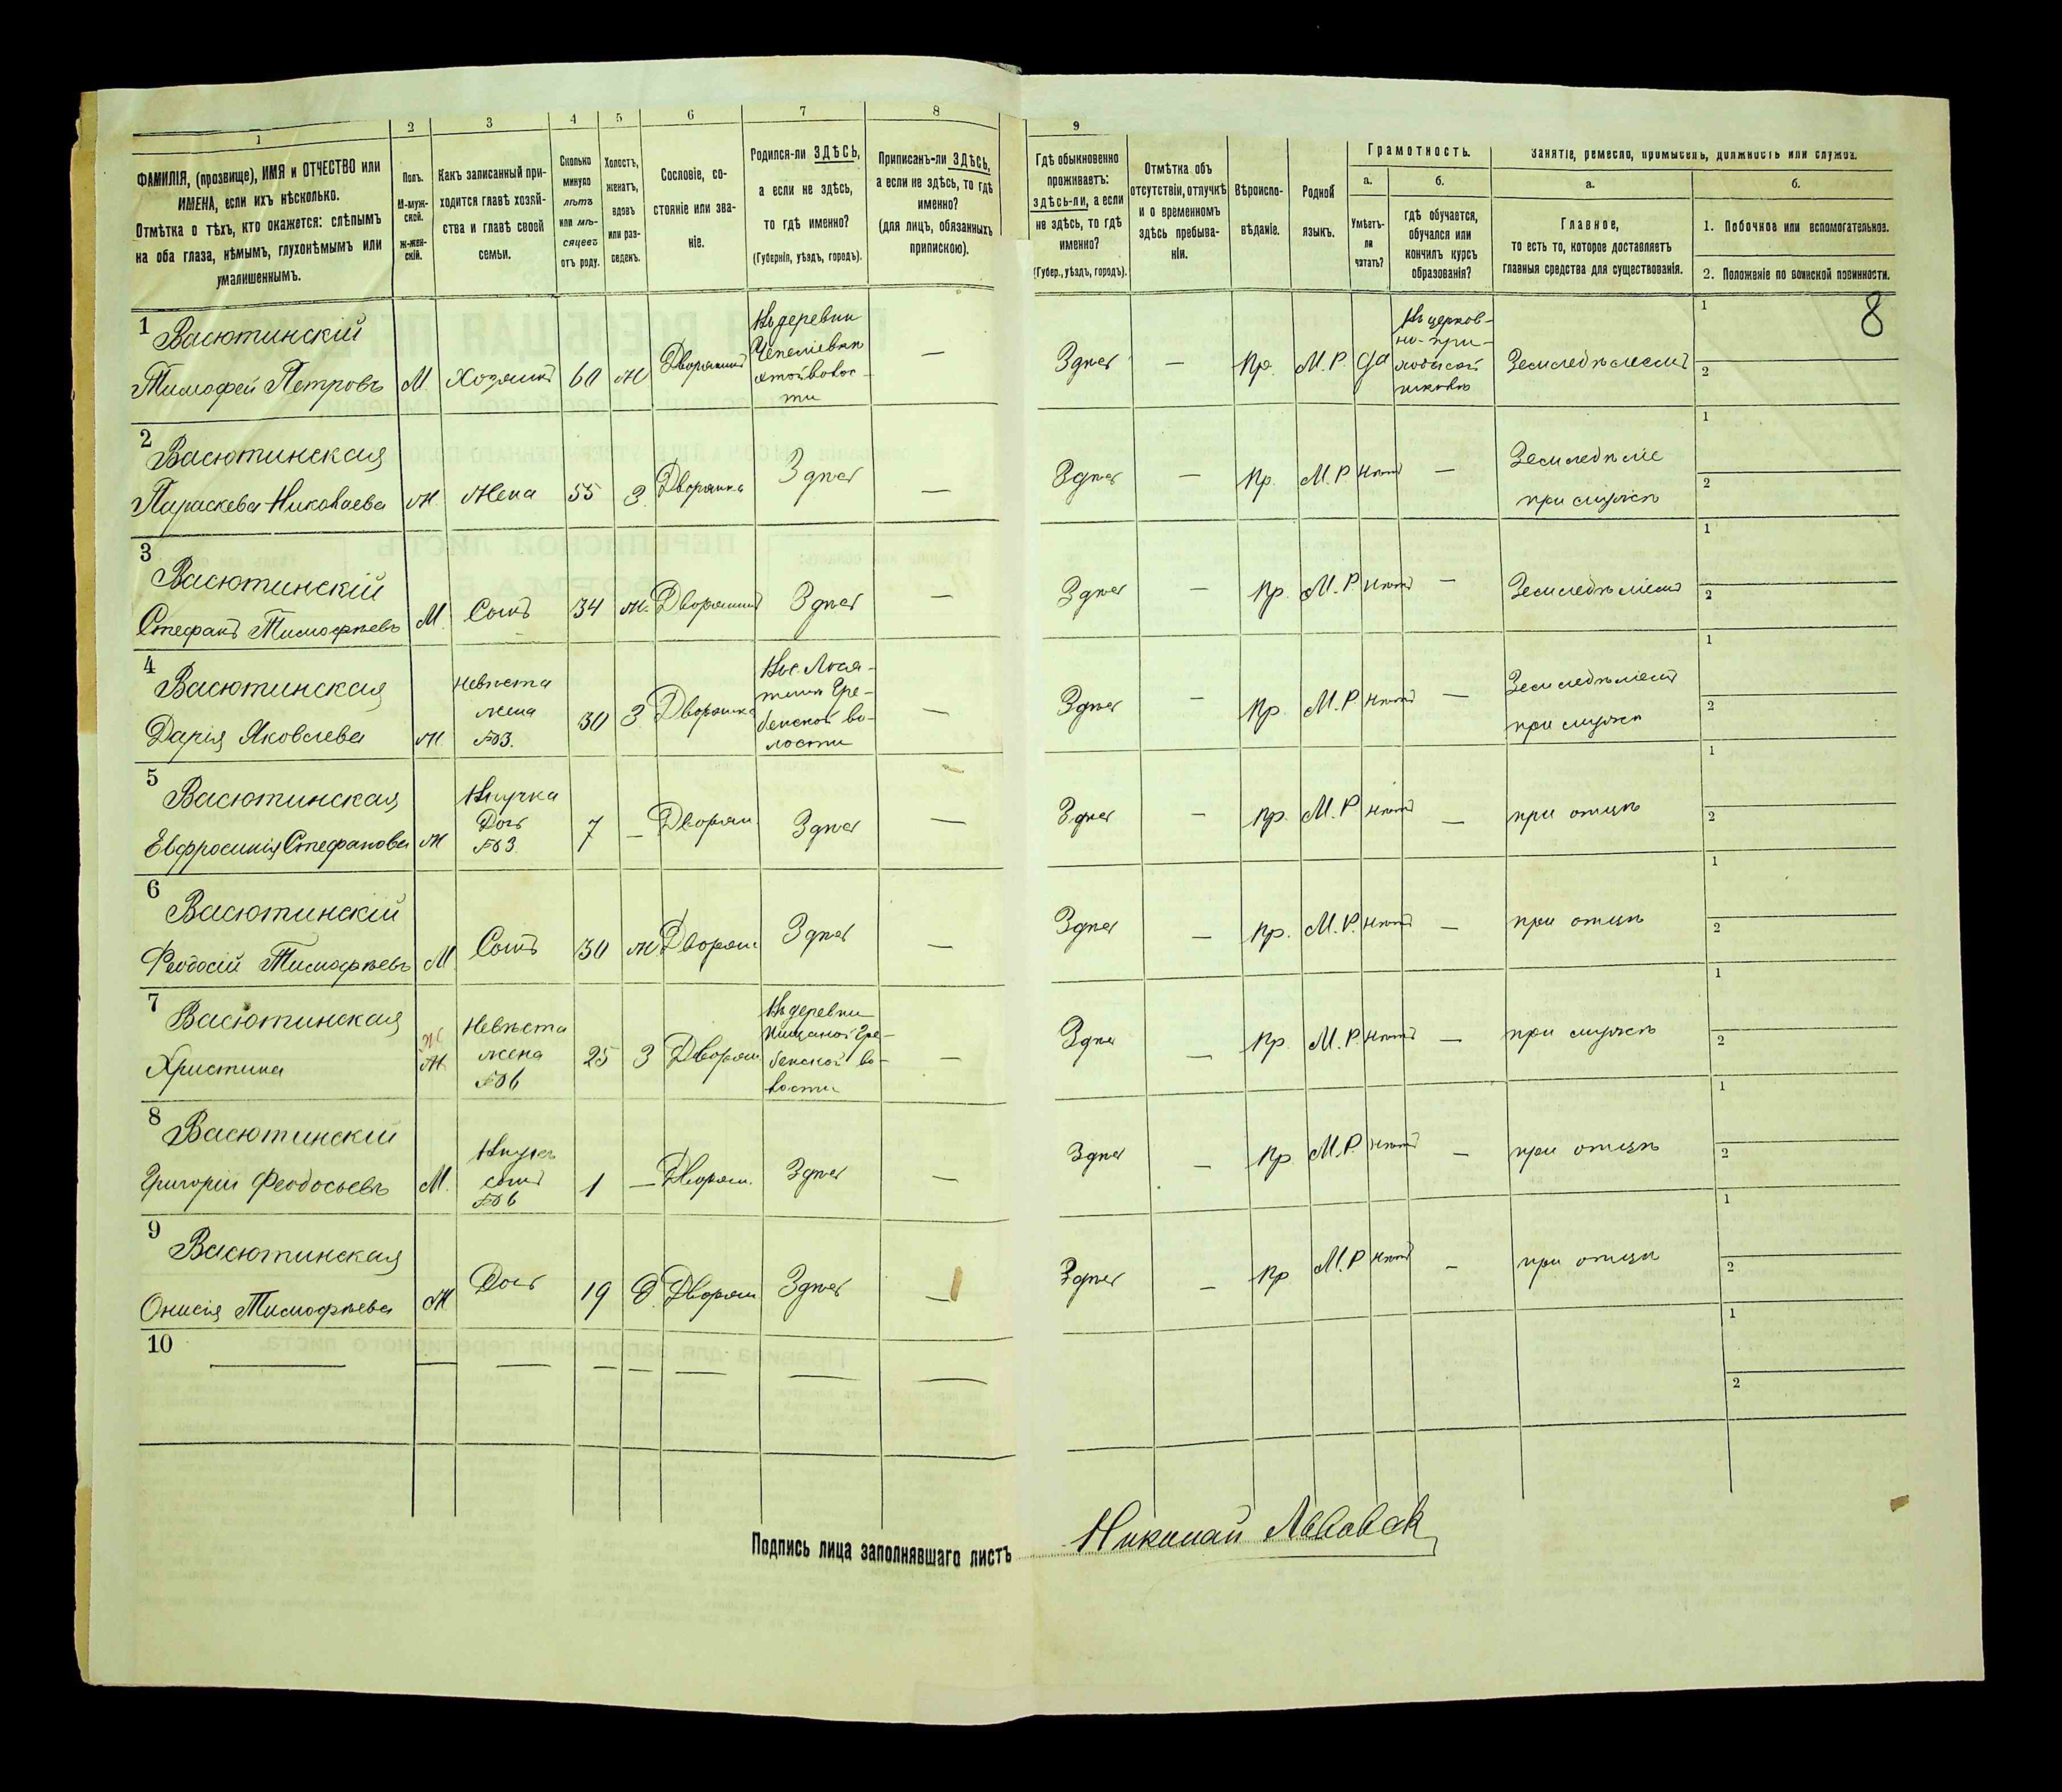 1 2 3 4 5 6 7 8 9
ФАМИЛІЯ, (прозвище), ИМЯ и ОТЧЕСТВО или
ИМЕНА, если ихъ нѣсколько.
Отмѣтка о тѣхъ, кто окажется: слѣпымъ
на оба глаза, нѣмымъ, глухонѣмымъ или
умалишеннымъ.
Полъ.
М-муж-
ской.
Ж-жен-
скій.
Какъ записанный при-
ходится главѣ хозяй-
ства и главѣ своей
семьи.
Сколько
минуло
лѣтъ
или мѣ-
сяцевъ
отъ роду.
Холостъ,
женатъ,
вдовъ
или раз-
веденъ.
Сословіе, со-
стояніе или зва-
ніе.
Родился-ли ЗДѢСЬ,
а если не здѣсь,
то гдѣ именно?
(Губернія, уѣздъ, городъ).
Приписанъ-ли ЗДѢСЬ,
а если не здѣсь, то гдѣ
именно?
(для лицъ, обязанныхъ
припискою).
Гдѣ обыкновенно
проживаетъ:
здѣсь-ли, а если
не здѣсь, то гдѣ
именно?
(Губер., уѣздъ, городъ).
Отмѣтка объ
отсутствіи, отлучкѣ
и о временномъ
здѣсь пребыва-
ніи.
Вѣроиспо-
вѣданіе.
Родной
языкъ.
Грамотность.
а.
Умѣетъ-
ли
читать?
б.
гдѣ обучается,
обучался или
кончилъ курсъ
образованія?
Занятіе, ремесло, промыселъ, должность или служба.
а.
Главное,
то есть то, которое доставляетъ
главныя средства для существованія.
б.
1. Побочное или вспомогательное.
2. Положеніе по воинской повинности.
8
1 Васютинскій
Тимофей Петровъ М. Хозяинъ 60 ж Дворянинъ
Въ деревни
волос-
ти
— Здѣсь — Пр. М.Р. да
Въ церков-
но-при-
ходской
школѣ
Земледѣлецъ
1
2
2 Васютинская
Параскева Николаева Ж. Жена 55 З. Дворянка Здѣсь — Здѣсь — Пр. М.Р нѣтъ —
Земледѣліе
при мужѣ
1
2
3 Васютинскій
Стефанъ Тимофѣевъ М. Сынъ 34 ж. Дворянинъ Здѣсь — Здѣсь — Пр. М.Р нѣтъ —
1
2
4 Васютинская
Дарія Яковлева Ж
невѣста
жена
№3.
30 З Дворянка
Гре-
бенской во-
лости
— Здѣсь — Пр. М.Р нѣтъ —
при мужѣ
1
2
5 Васютинская
Евфросинія Стефанова Ж
Внучка
Дочь
№3
7 — Дворян. Здѣсь — Здѣсь — Пр. М.Р нѣтъ — при отцѣ
1
2
6 Васютинскій
Феодосій Тимофѣевъ М Сынъ 30 ж Дворян. Здѣсь — Здѣсь — Пр. М.Р. нѣтъ — при отцѣ
1
2
7 Васютинская
Христина Ж Ж
Невѣста
жена
№6
25 З Дворян
Въ деревни
Гре-
бенской во-
лости
— Здѣсь — Пр М.Р нѣтъ — при мужѣ
1
2
8 Васютинскій
Григорій Феодосьевъ М.
Внукъ
сынъ
№6
1 — Дворян. Здѣсь — Здѣсь — Пр М.Р. нѣтъ — при отцѣ
1
2
9 Васютинская
Онисія Тимофѣева Ж Дочь 19 Д. Дворян Здѣсь — Здѣсь — Пр М.Р нѣтъ — при отцѣ
1
2
10 — — — — — — — —
1
2
Подпись лица заполнявшаго листъ Николай